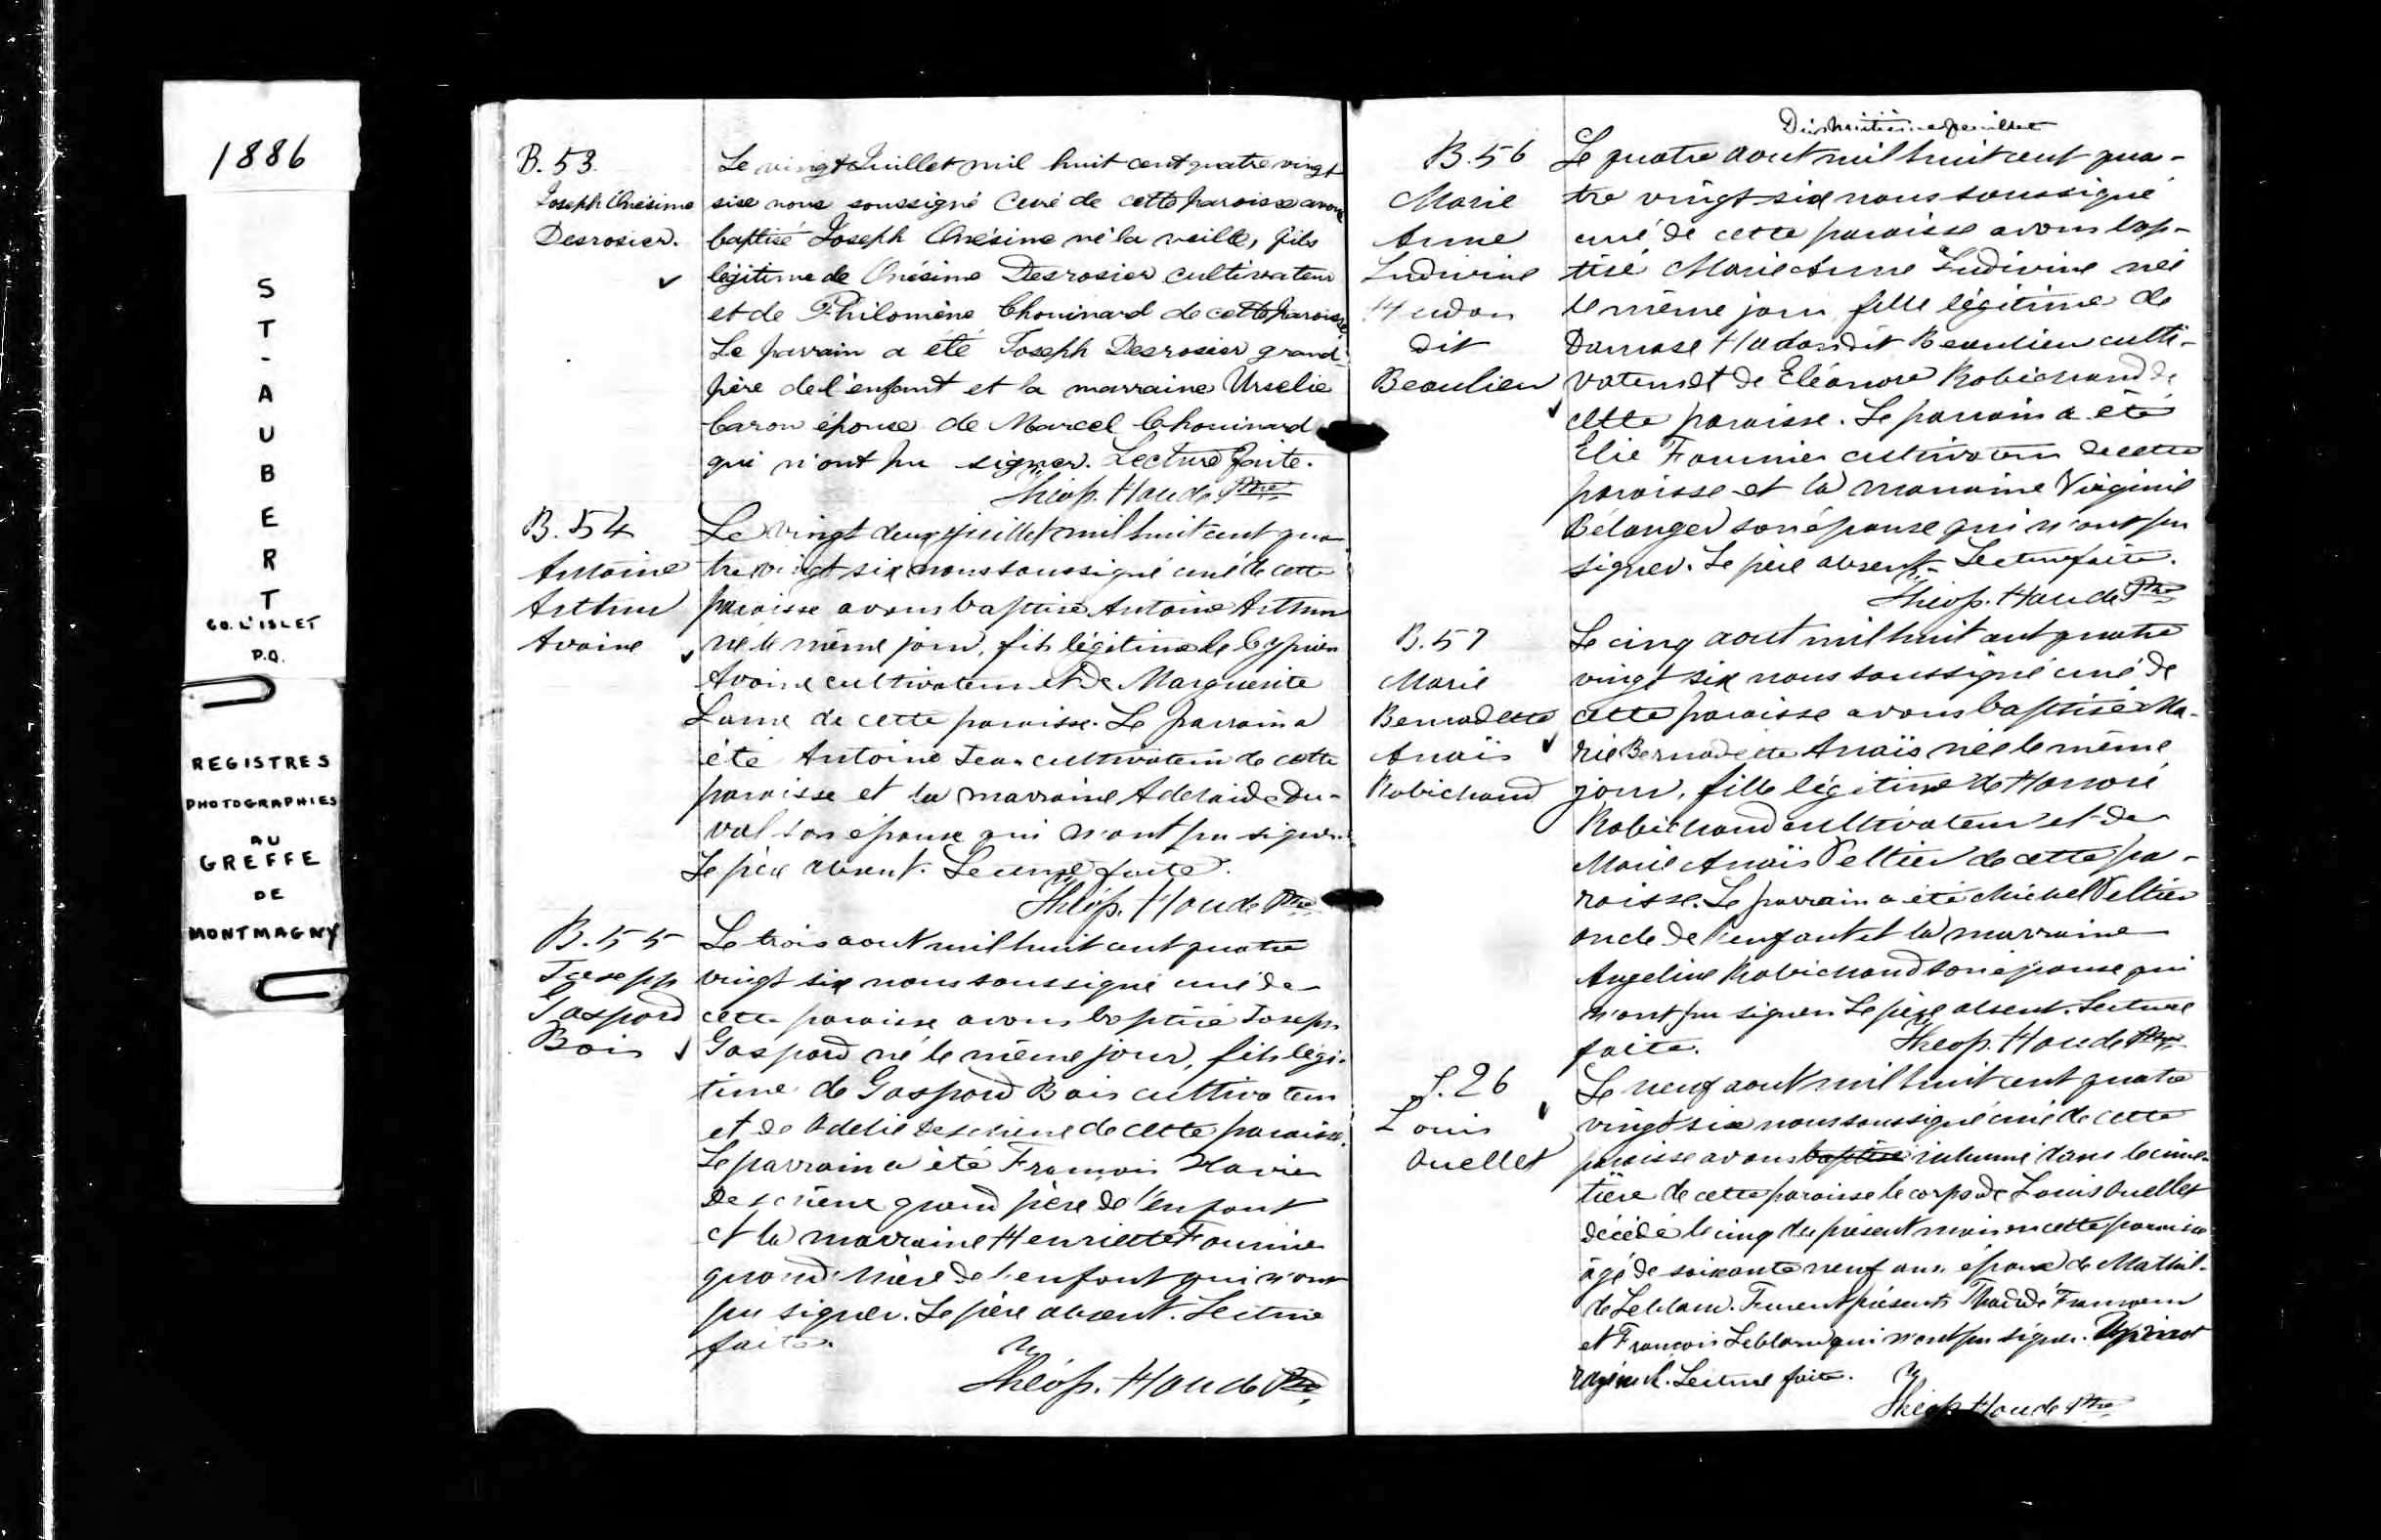 1886
ST-AUBERT
CO. L'ISLET
P.Q.
REGISTRES
PHOTOGRAPHIES
AU
GREFFE
DE
MONTMAGNY
B. 53.
Joseph Onésime
Desrosier.
Le vingt Juillet mil huit cent quatre vingt
sise nous soussigné Curé de cette paroisse avons
baptisé Joseph Onésime né la veille, fils
légitime de Onésime Desrosier cultivateur
et de Philomène Chouinard de cette paroisse
Le parrain a été Joseph Desrosier grand-
père de l'enfant et la marraine Urselie
Caron épouse de Marcel Chouinard
qui n'ont pu signer. Lecture faite.
Théop. Houde Ptre
B. 54
Antoine
Arthur
Avoine
Le vingt deux juillet mil huit cent qua-
tre vingt six nous soussigné curé de cette
paroisse avons baptisé Antoine Arthur
né le même jour, fils légitime de Cyprien
Avoine cultivateur et de Marguerite
Lame de cette paroisse. Le parrain a
été Antoine Jean cultivateur de cette
paroisse et la marraine Adelaide Du-
val son épouse qui n'ont pu signer.
Le père absent. Lecture faite.
Théop. Houde Ptre
B. 55
Joseph
Gaspard
Bois
Le trois aout mil huit cent quatre
vingt six nous soussigné curé de
cette paroisse avons baptisé Joseph
Gaspard né le même jour, fils légi-
time de Gaspard Bois cultivateur
et de Adelie Deschène de cette paroisse.
Le parrain a été François Xavier
Deschène grand père de l'enfant
et la marraine Henriette Fournier
grand'mère de l'enfant qui n'ont
pu signer. Le père absent. Lecture
faite.
Théop. Houde Ptre
Dix huitième feuillet
B. 56
Marie
Anne
Ludivine
Hudon
dit
Beaulieu
Le quatre aout mil huit cent qua-
tre vingt six nous soussigné
curé de cette paroisse avons bap-
tisé Marie Anne Ludivine née
le même jour fille légitime de
Damase Hudon dit Beaulieu culti-
vateur et de Eléonore Robichaud de
cette paroisse. Le parrain a été
Elie Fournier cultivateur de cette
paroisse et la marraine Virginie
Bélanger son épouse qui n'ont pu
signer. Le père absent. Lecture faite.
Théop. Houde Ptre
B. 57
Marie
Bernadette
Anaïs
Robichaud
Le cinq aout mil huit cent quatre
vingt six nous soussigné curé de
cette paroisse avons baptisé Ma-
rie Bernadette Anaïs née le même
jour, fille légitime de Honoré
Robichaud cultivateur et de
Marie Anaïs Peltier de cette pa-
roisse. Le parrain a été Michel Peltier
oncle de l'enfant et la marraine
Angeline Robichaud son épouse qui
n'ont pu signer. Le père absent. Lecture
faite. Théop. Houde Ptre
S. 26
Louis
Ouellet
Le neuf aout mil huit cent quatre
vingt six nous soussigné curé de cette
paroisse avons baptisé inhumé dans le cime-
tière de cette paroisse le corps de Louis Ouellet
décédé le cinq du présent mois en cette paroisse
âgé de soixante neuf ans époux de Mathil-
de Leblanc. Furent présents
et François Leblanc qui n'ont pu signer. Un mot
rayé nul. Lecture faite.
Théop. Houde Ptre